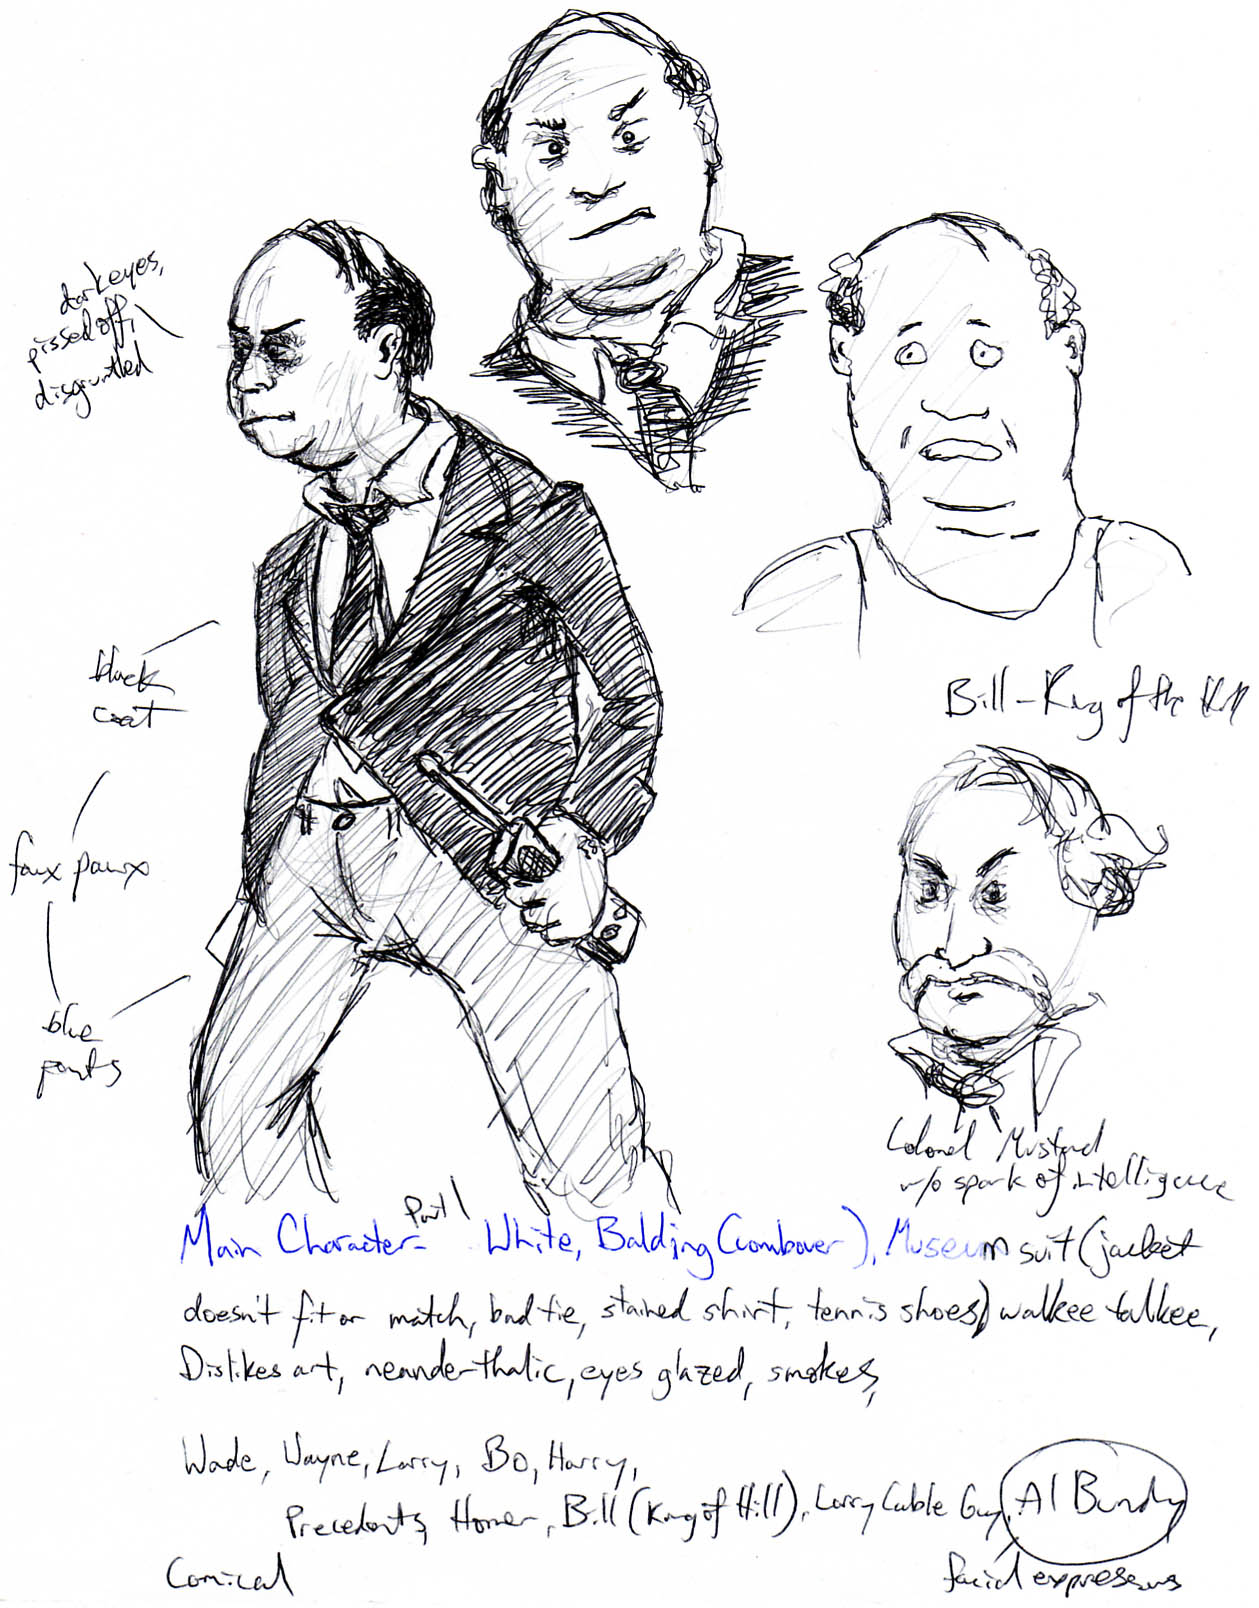 dark eyes,
pissed off,
disgruntled
black
coat
faux pawx
blue
pants
Bill - King of the Hill
Colonel Mustard
w/o spark of intelligence
Main Character - Part 1 White, Balding (combover), Museum suit (jacket
doesn't fit or match, bad tie, stained shirt, tennis shoes) walkee talkee,
Dislikes art, neanderthalic, eyes glazed, smokes,
Wade, Wayne, Larry, Bo, Harry,
Precedents, Homer, Bill (King of Hill), Larry Cable Guy, Al Bundy
Comical
facial expressions